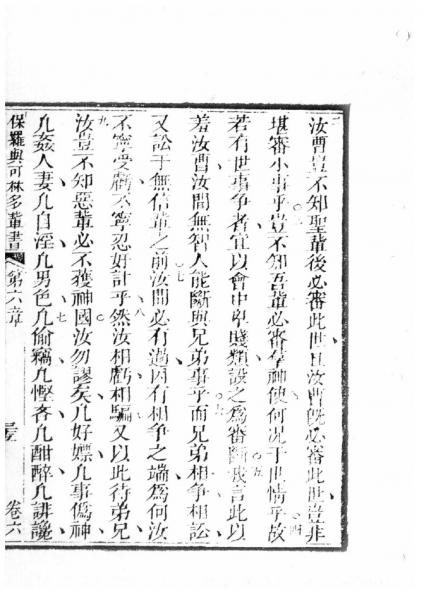 汝曹豈不知聖輩後必審此世且汝曹旣必審此世豈非
堪審小事乎豈不知吾輩必審𠅤神使何况于世情乎故
若有世事爭者宜以會中卑賤類設之爲審斷我言此以
羞汝曹汝間無智人能斷與兄弟事乎而兄弟相爭相訟
又訟于無信輩之前汝間必有過因有相爭之端爲何汝
不寧受虧不寧忍奸計乎然汝相虧相騙又以此待弟兄
汝豈不知惡輩必不獲神國汝勿謬矣凡好嫖凡事僞神
凡姦人妻凡自淫凡男色凡偷竊凡慳吝凡酣醉凡誹讒
保羅與可林多輩書 第六章 卷六
二
三
四
五
六
七
八
九